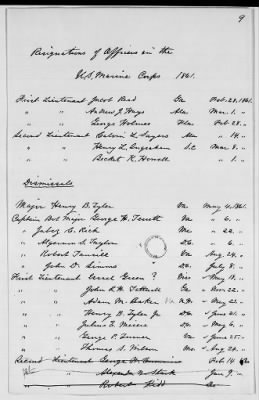 9
Resignations of Officers in the
U.S. Marine Corps 1861.
First Lieutenant Jacob Read Ga Feb. 28, 1861.
" " Andrew J. Hays Ala Mar. 1. "
" " George Holmes Feb 28. "
Second Lieutenant Calvin L. Sayers Ala " 14. "
" " Henry L. Ingraham S.C Mar. 8. "
" " Becket K. Howell " 1. "
Dismissals
Major Henry B. Tyler Va May 4, 1861.
Captain Bvt Major George H. Terrett Va " 6. "
" Jabez C. Rich Me " 22. "
" Algernon S. Taylor " 6. "
" Robert Tansill Va Aug. 24. "
" John D. Simms July 8. "
First Lieutenant Israel Green
" " John R. F. Tattnall Ga " Nov. 22. "
" " Adam N. Baker " May 22. "
" " Henry B. Tyler Jr
" " Julius E. Meiere " May 6. "
" " George P. Turner Va " June 25. "
" " Thomas S. Wilson Mo " Aug 20. "
Second Lieutenant George Feb 14
" " Alexander W. Stark Jan 9. "
" " Robert Kidd